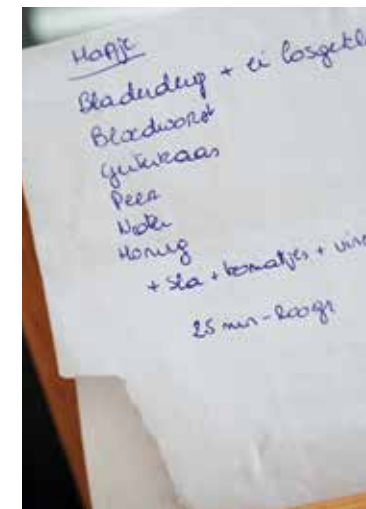 Hapje
Bladerdeeg + ei losgekl
Bloedworst
Geitekaas
Peer
Noten
Honing
+ sla + tomatjes + vin
25 min - 200gr